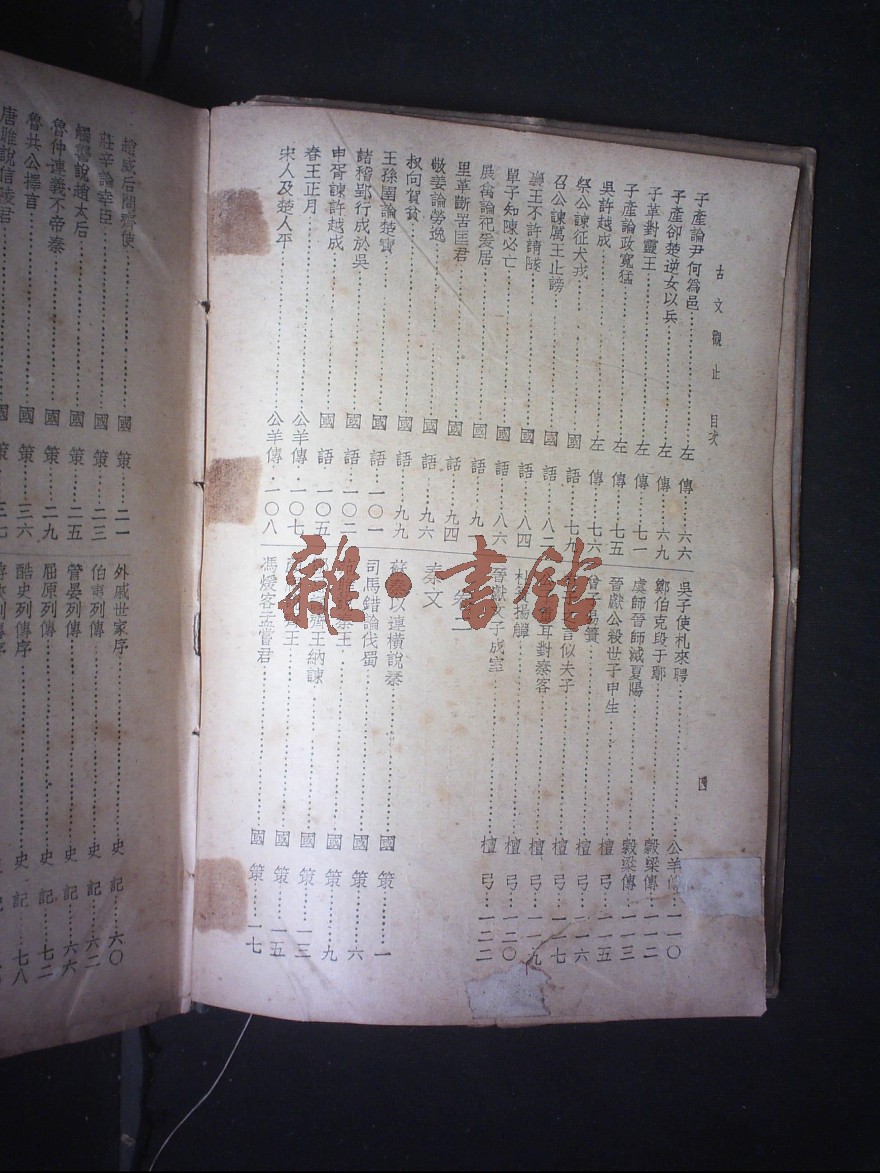 古文觀止 目次
子產論尹何爲邑……左傳……六六
子產卻楚逆女以兵……左傳……六九
子革對靈王……左傳……七一
子產論政寬猛……左傳……七五
吳許越成……左傳……七六
祭公諫征犬戎……國語……七九
召公諫厲王止謗……國語……八二
襄王不許請隧……國語……八四
單子知陳必亡……國語……八六
展禽論祀爰居……國語……九
里革斷罟匡君……國話……九四
敬姜論勞逸……國語……九六
叔向賀貧……國語……九九
王孫圉論楚寶……國語……一〇一
諸稽郢行成於吳……國語……一〇二
申胥諫許越成……國語……一〇五
春王正月……公羊傳……一〇七
宋人及楚人平……公羊傳……一〇八
吳子使札來聘……公羊傳……一一〇
鄭伯克段于鄢……穀梁傳……一一二
虞師晉師滅夏陽……穀梁傳……一一三
晉獻公殺世子申生……檀弓……一一五
曾子易簀……檀弓……一一六
言似夫子……檀弓……一一七
耳對秦客……檀弓……一一九
杜蕡揚觶……檀弓……一二〇
晉獻文子成室……檀弓……一二二
卷二
秦文
蘇秦以連橫說秦……國策……一
司馬錯論伐蜀……國策……六
秦王……國策……九
齊王納諫……國策……一三
王……國策……一五
馮煖客孟嘗君……國策……一七
四
趙威后問齊使……國策……二一
莊辛論幸臣……國策……二三
觸讋說趙太后……國策……二五
魯仲連義不帝秦……國策……二九
魯共公擇言……國策……三六
唐雎說信陵君……國策……三七
外戚世家序……史記……六〇
伯夷列傳……史記……六二
管晏列傳……史記……六六
屈原列傳……史記……七二
酷吏列傳序……史記……七八
雜·書館